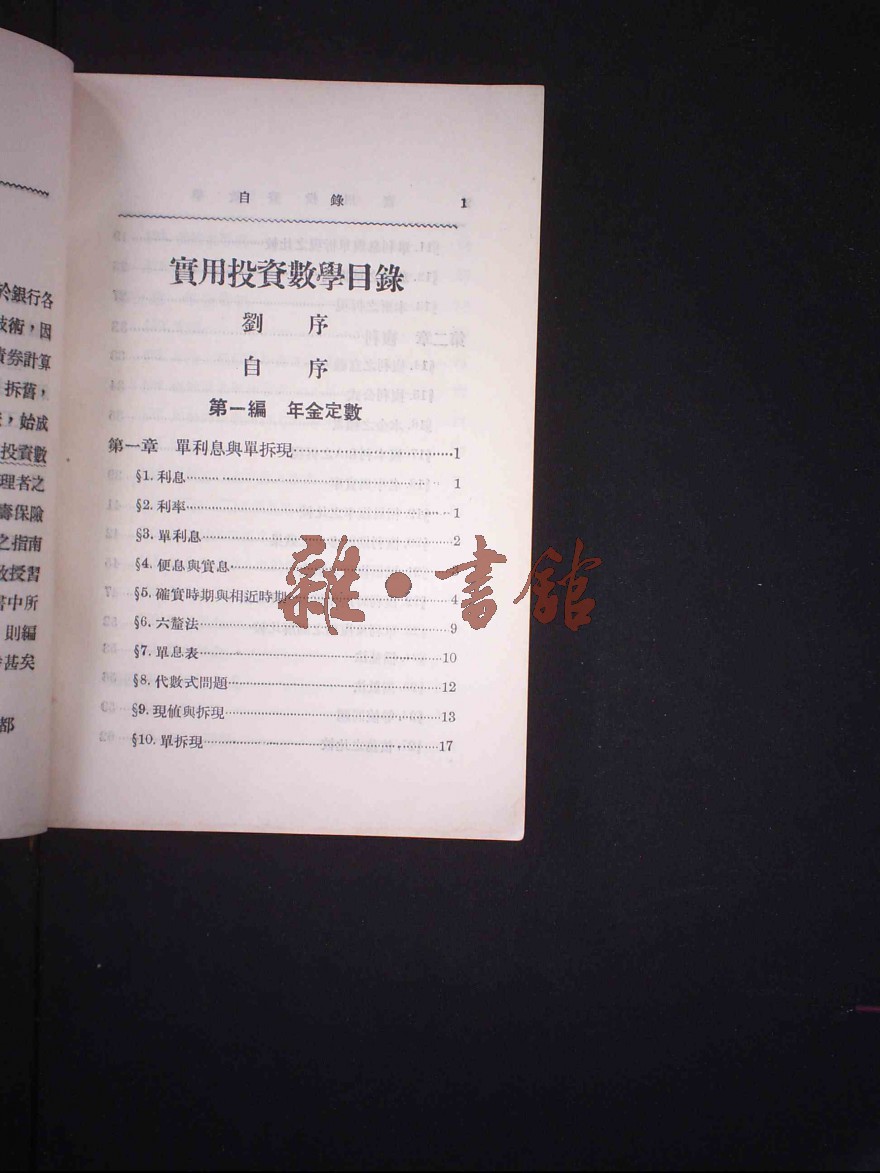 自錄 1
實用投資數學目錄
劉序
自序
第一編 年金定數
第一章 單利息與單拆現……1
§1. 利息……1
§2. 利率……1
§3. 單利息……2
§4. 便息與實息
§5. 確實時期與相近時期……4
§6. 六釐法……9
§7. 單息表……10
§8. 代數式問題……12
§9. 現值與拆現……13
§10. 單拆現……17
於銀行各
技術，因
債券計算
拆舊，
始成
投資數
理者之
壽保險
之指南
教授習
書中所
則編
甚矣
都
雜·書館